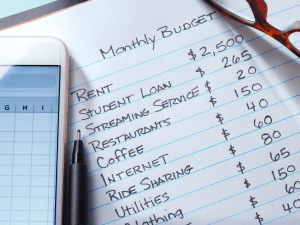 G H I
Monthly Budget
Rent $2,500
Student Loan $265
Streaming Service $20
Restaurants $150
Coffee $40
Internet $60
Ride Sharing $90
Utilities $65
Clothing $150
$60
$